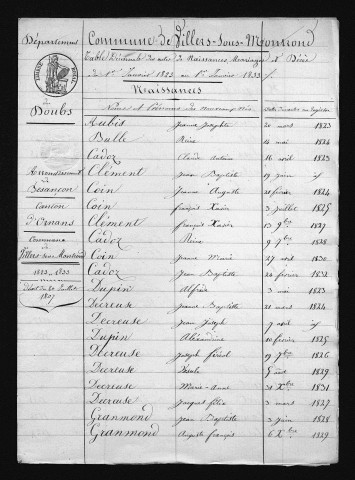 Département
du
Doubs
Arrondissement
de
Besançon
Canton
d'Ornans
Commune
de
Villers-Sous-Montrond
1823 - 1833
Décret du 20 Juillet
1807
Commune de Villers-Sous-Montrond
Table Décennale des actes de Naissances, Mariages & Décès
du 1er Janvier 1823 au 1er Janvier 1833
Naissances
Noms et Prénoms des nouveaux-nés Date d'inscription au registre
Aubis Jeanne Josephte 20 mars 1823
Bulle Reine 14 mai 1824
Cadoz Claude Antoine 16 avril 1823
Clément Jean Baptiste 19 juin
Coin Jeanne Auguste 21 février 1824
Coin françois Xavier 3 juillet 1825
Clément françois Xavier 13 9bre 1827
Cadoz Reine 9 7bre 1828
Coin Jeanne Marie 27 avril 1830
Cadoz Jean Baptiste 24 février 1832
Dupin Alfred 3 mai 1823
Decreuse Jeanne Baptiste 21 mars 1824
Decreuse Jean Joseph 7 août
Dupin Alexandrine 10 février 1825
Decreuse Joseph féréol 19 7bre 1826
Decreuse 5 août 1829
Decreuse Marie-Anne 21 Xbre 1831
Decreuse Jacques félix 3 mars 1827
Granmond Jean Baptiste 3 juin 1828
Granmond Auguste françois 6 Xbre 1829